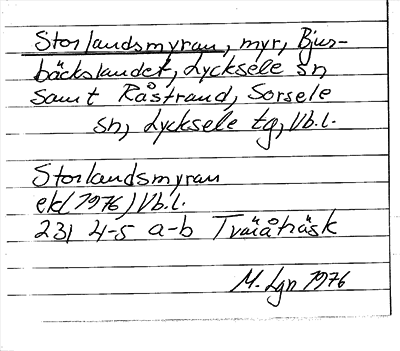 Storlandsmyran, myr, Bjur-
bäckslandet, Lycksele sn
samt Råstrand, Sorsele
sn, Lycksele tg, Vb.l.
Storlandsmyran
ek(1976) Vb.l.
231 4-5 a-b Tväråträsk
M. Lgn 1976